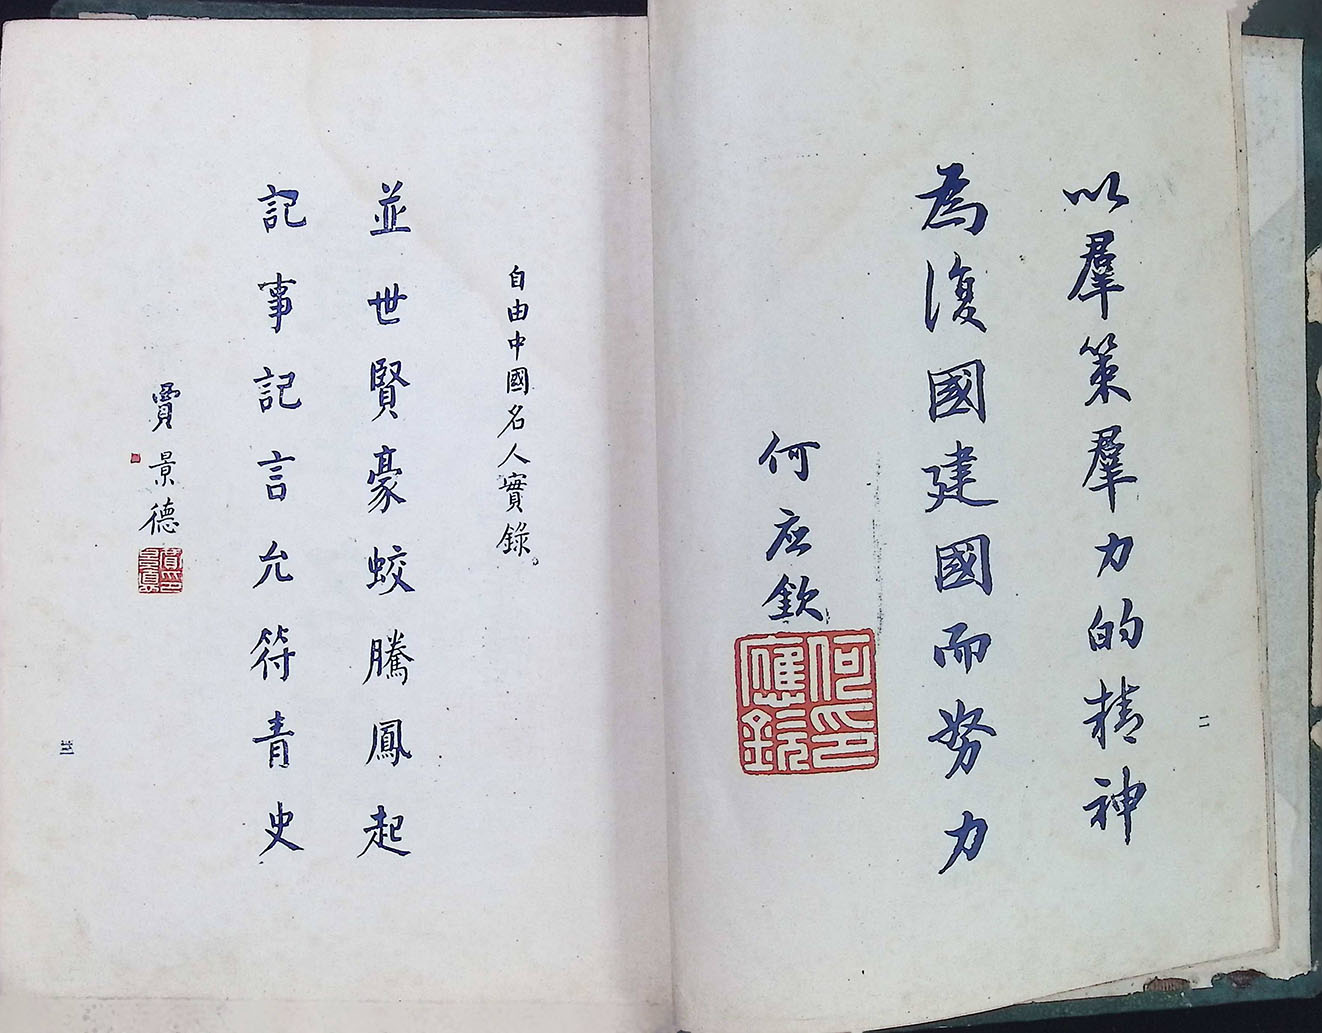 以羣策羣力的精神
為復國建國而努力
何应欽
何印應欽
二
自由中國名人實錄。
並世賢豪蛟騰鳳起
記事記言允符青史
賈景德
三